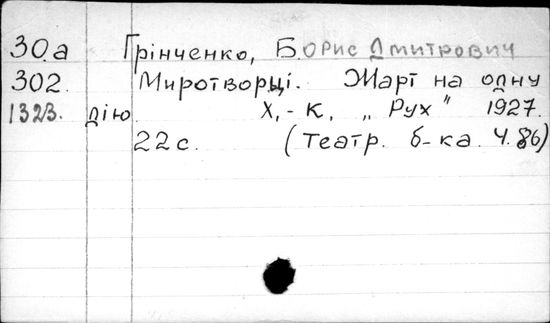 30.а Грінченко, Борис Дмитрович
302. Миротворці. Жарт на одну
1323. дію. Х,-К, „Рух" 1927.
22 с. (Театр. б-ка. Ч. 86)